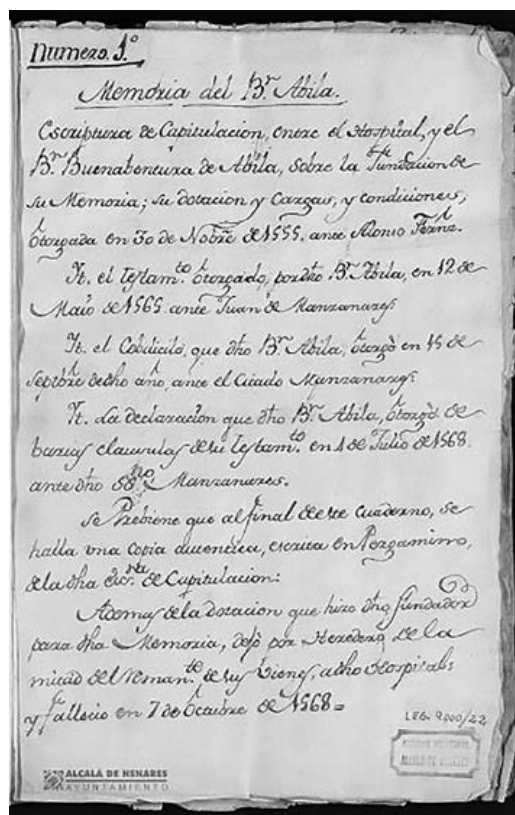 Numero. 1.º
Memoria del B.r Abila.
Escriptura de Capitulacion, entre el Hospital, y el
B.r Buenabentura de Abila, sobre la Fundacion de
su Memoria; su dotacion y Cargas, y condiciones,
otorgada en 30 de Nobre de 1555. ante Alonso Fernz.
It. el testam.to otorgado, por dho B.r Abila, en 12 de
Maio de 1565. ante Juan de Manzanares:
It. el Cobdicilo, que dho B.r Abila, otorgò en 15 de
Septbre decho año, ante el Citado Manzanares:
It. La declaracion que dho B.r Abila, otorgò de
barias clausulas de su testam.to en 4 de Julio de 1568.
ante dho Manzanares.
Se Prebiene que al final de este cuaderno, se
halla una Copia autentica, escrita en Pergamino,
de la dha Escr.ra de Capitulacion:
Ademas de la dotacion que hizo dho fundador
para dha Memoria, dejò por Heredero de la
mitad del Reman.te de sus vienes, adho Hospital:
y fallecio en 7 de Octubre de 1568=
LEG. 9.000/22
ALCALÁ DE HENARES
AYUNTAMIENTO